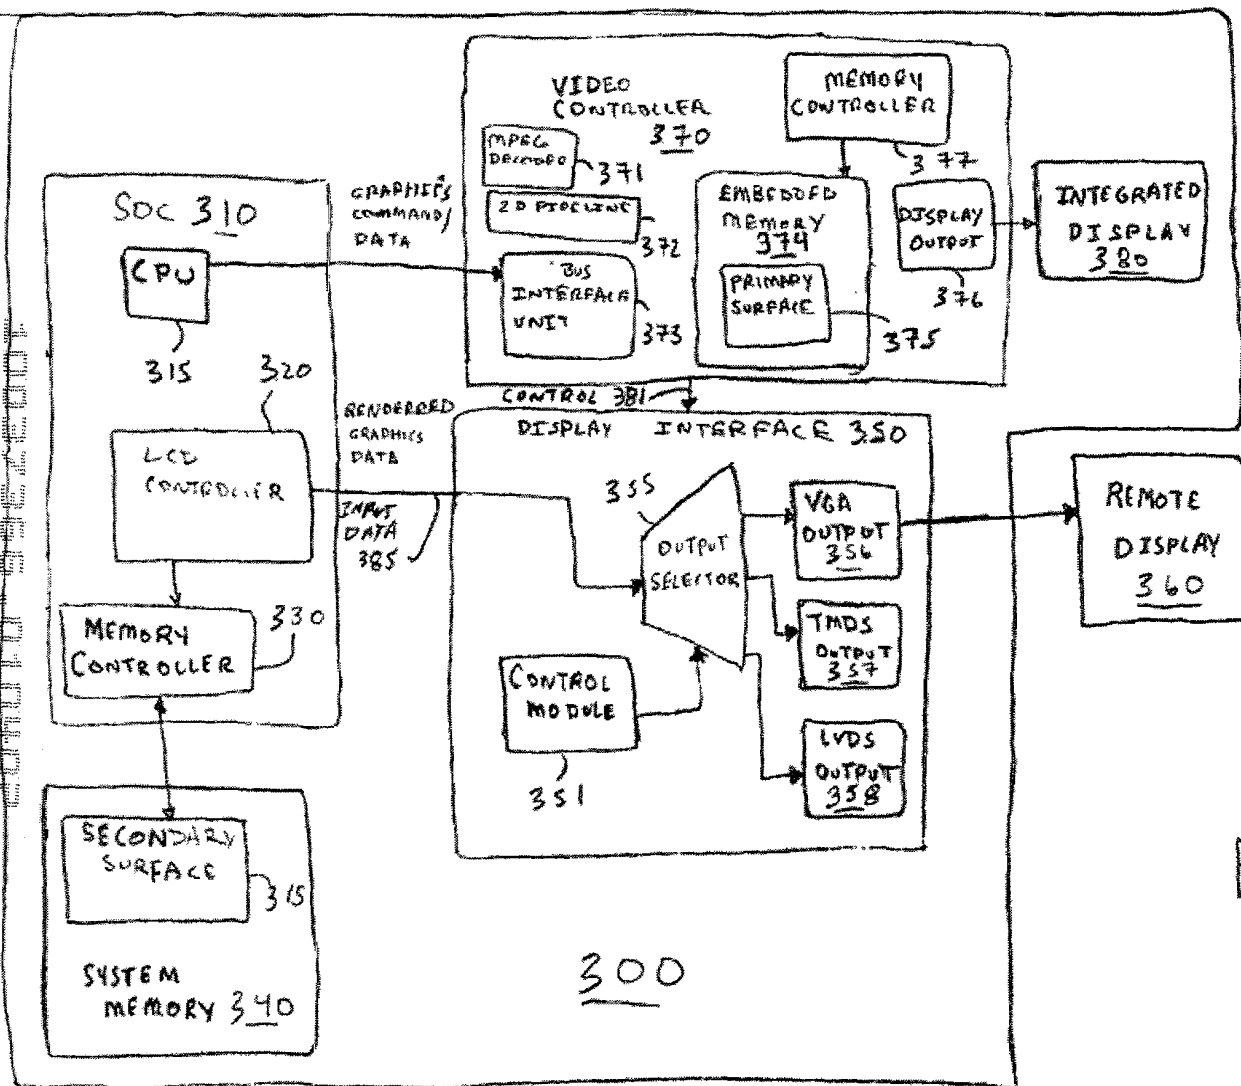 VIDEO
CONTROLLER
370
MPEG
DECODER
371
2D PIPELINE
372
BUS
INTERFACE
UNIT
373
MEMORY
CONTROLLER
377
EMBEDDED
MEMORY
374
PRIMARY
SURFACE
375
DISPLAY
OUTPUT
376
INTEGRATED
DISPLAY
380
SOC 310
CPU
315
GRAPHICS
COMMAND/
DATA
320
LCD
CONTROLLER
RENDERRED
GRAPHICS
DATA
INPUT
DATA
385
MEMORY
CONTROLLER
330
CONTROL 381
DISPLAY INTERFACE 350
355
OUTPUT
SELECTOR
VGA
OUTPUT
356
TMDS
OUTPUT
357
LVDS
OUTPUT
358
CONTROL
MODULE
351
REMOTE
DISPLAY
360
SECONDARY
SURFACE
315
SYSTEM
MEMORY 340
300